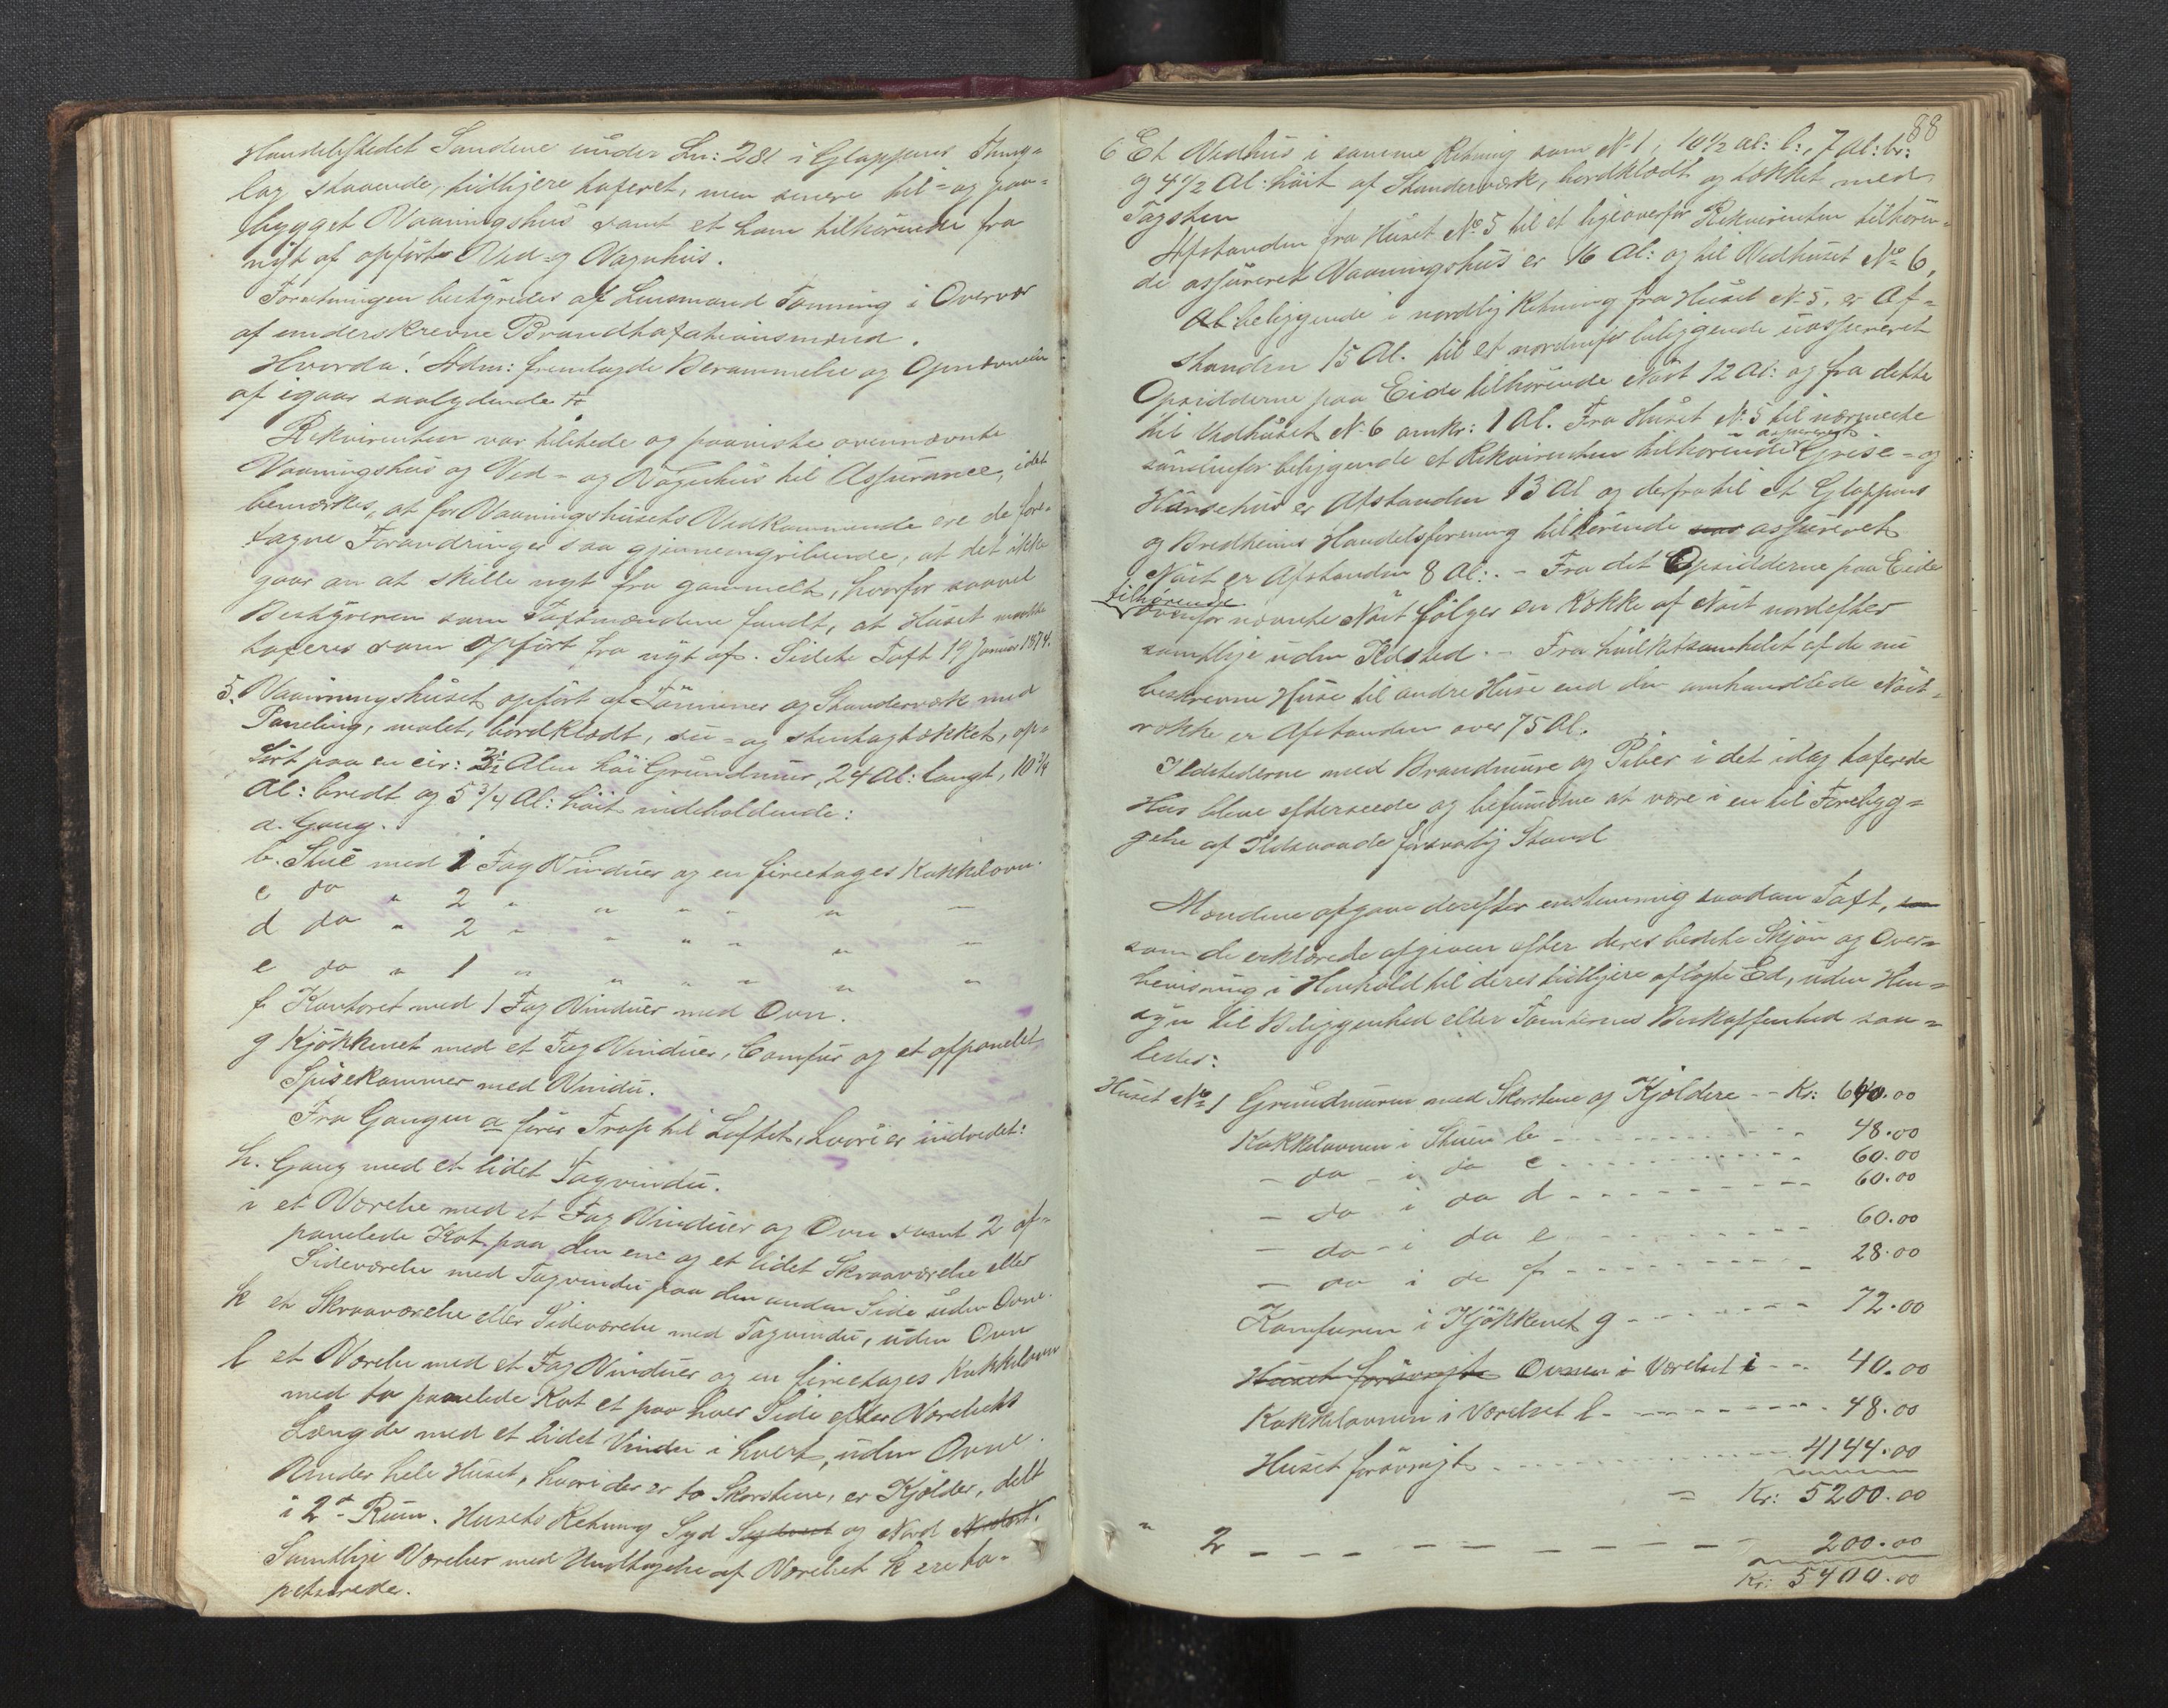 Handelsstedet Sandene under Ln: 281 i Gloppens Thing-
lag staaende, tidligere taxeret, men senere til- og paa-
bygget Vaaningshus samt et ham tilhørende fra
nyt af opført Ved- og Vognhus.
Forretningen bestyredes af Lensmand Tonning i Overvær
af underskrevne Brandtaxationsmænd.
Hvorda! Adm: fremlagde Berammelse og Opnævnelse
af igaar saalydende
Rekvirenten var tilstede og paaviste ovennævnte
Vaaningshus og Ved- og Vognhus til Assurance, idet
bemærkes, at for Vaaningshusets Vedkommende ere de fore-
tagne Forandringer saa gjennemgribende, at det ikke
gaar an at skille nyt fra gammelt, hvorfor saavel
Bestyreren som Taxtmændene fandt, at Huset maatte
taxeres som opført fra nyt af. Sidste Taxt 19 Januar 1874.
5. Vaaningshuset opført af Tømmer og Standerværk med
Paneling, malet, bordklædt, og stentagtækket, op-
ført paa en cir: 3½ Alen høi Grundmur, 24 Al: langt, 10¾
Al: bredt og 5¾ Al: høit indeholdende:
a. Gang.
b. Stue med 1 Fag Vinduer og en fireetages Kakkelovn.
c do " 2 " " " " " "
d do " 2 " " " " " "
e do " 1 " " " " " "
f Kontoret med 1 Fag Vinduer med Ovn.
g Kjøkkenet med et Fag Vinduer, Comfur og et afpanelet
Spisekammer med Vindu.
Fra Gangen a fører Trap til Loftet, hvori er indredet:
h. Gang med et lidet Tagvindu.
i et Værelse med et Fag Vinduer og Ovn samt 2 af-
panelede Kot paa den ene og et lidet Skraaværelse eller
Sideværelse med Tagvindu paa den anden Side uden Ovne.
k et Skraaværelse eller Sideværelse med Tagvindu, uden Ovn
l et Værelse med et Fag Vinduer og en fireetages Kakkelovn
med to panelede Kot et paa hver Side efter Værelsets
Længde med et lidet Vindu i hvert, uden Ovne.
Under hele Huset, hvori der er to Skorstene, er Kjelder, delt
i 2de Rum. Husets Retning Syd Sydvest og Nord Nordost.
Samtlige Værelser med Undtagelse af Værelset k ere ta-
petserede.
88
6 Et Vedhus i samme Retning som No 1, 10½ Al: l:, 7 Al: br:
og 4½ Al: høit af Standerværk, bordklædt og tækket med
Tagsten
Afstanden fra Huset No 5 til et ligeoverfor Rekvirenten tilhøren-
de assureret Vaaningshus er 16 Al: og til Vedhuset No 6,
Al beliggende i nordlig Retning fra Huset No 5, er Af-
standen 15 Al. til et nordenfor beliggende uassureret
Opsidderne paa Eide tilhørende Nøst 12 Al: og fra dette
til Vedhuset No 6 omkr: 1 Al. Fra Huset No 5 til nærmeste
søndenfor beliggende et Rekvirenten tilhørende assureret Grise- og
Hønsehus er Afstanden 13 Al og derfra til et Gloppens
og Bredheims Handelsforening tilhørende assureret
Nøst er Afstanden 8 Al:. - Fra det Opsidderne paa Eide
tilhørende
ovenfor nævnte Nøst følger en Række af Nøst nordefter
samtlige uden Ildsted. - Fra hvilketsomhelst af de nu
beskrevne Huse til andre Huse end den omhandlede Nøst-
række er Afstanden over 75 Al.
Ildstederne med Brandmure og Piber i det idag taxerede
Hus bleve efterseede og befundne at være i en til Forebyg-
gelse af Ildsvaade forsvarlig Stand
Mændene afgave derefter enstemmig saadan Taxt, som
som de erklærede afgiven efter deres bedste Skjøn og Over-
bevisning i Henhold til deres tidligere aflagte Ed, uden Hen-
syn til Beliggenhed eller Tomternes Beskaffenhed saa-
ledes:
Huset No 1 Grundmuren med Skorstene og Kjeldere - - Kr: 640.00
Kakkelovnen i Stuen b - - - 48.00
- do - i do c - - - 60.00
- do i do d - - - 60.00
- do - i do e - - - 60.00
- do i do f - - - 28.00
Komfuren i Kjøkkenet g - - - 72.00
Huset forøvrigt Ovnen i Værelset i - - 40.00
Kakkelovnen i Værelset l - - - 48.00
Huset forøvrigt - - - 4144.00
= Kr: 5200.00
" 2 - - - 200.00
Kr: 5400.00